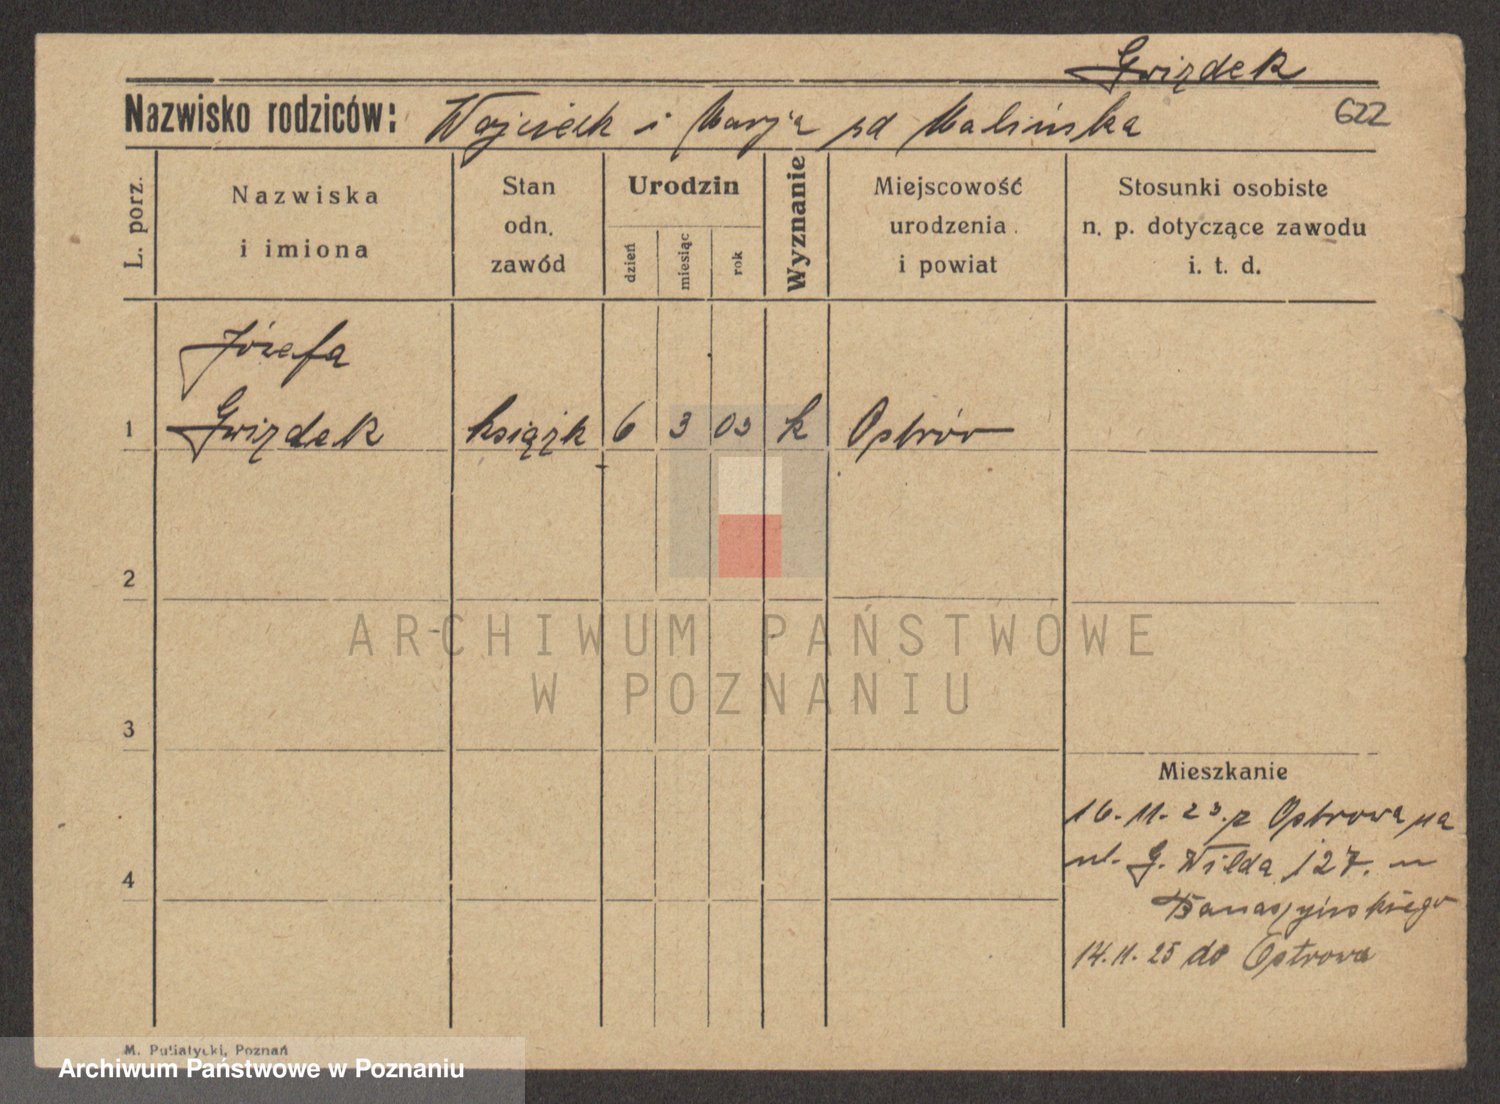 Gwizdek
Nazwisko rodziców: Wojciech i Marja zd Malińska
622
L. porz.
Nazwiska
i imiona
Stan
odn.
zawód
Urodzin
dzień
miesiąc
rok
Wyznanie
Miejscowość
urodzenia
i powiat
Stosunki osobiste
n. p. dotyczące zawodu
i. t. d.
Józefa
1 Gwizdek książk 6 3 03 k Ostrów
2
ARCHIWUM PAŃSTWOWE
W POZNANIU
3
Mieszkanie
16. 11. 23. z Ostrowa na
ul. G. Wilda 127. u
4
Banaszyńskiego
14. 11. 25 do Ostrowa
M. Putiatycki, Poznań
Archiwum Państwowe w Poznaniu